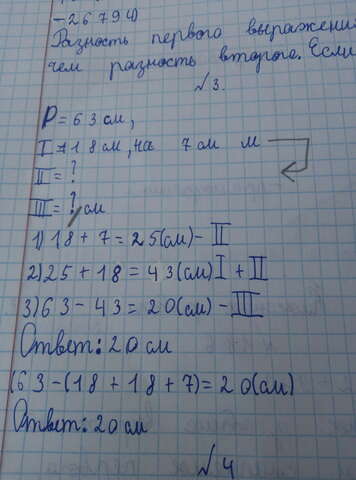 -26794)
Разность первого выражени
чем разность второго. Если
№3.
P = 63 см,
I = 18 см, на 7 см м
II = ?
III = ? см
1) 18 + 7 = 25(см) - II
2) 25 + 18 = 43(см) I + II
3) 63 - 43 = 20(см) - III
Ответ: 20 см
(63-(18 + 18 + 7) = 20(см)
Ответ: 20 см
№4